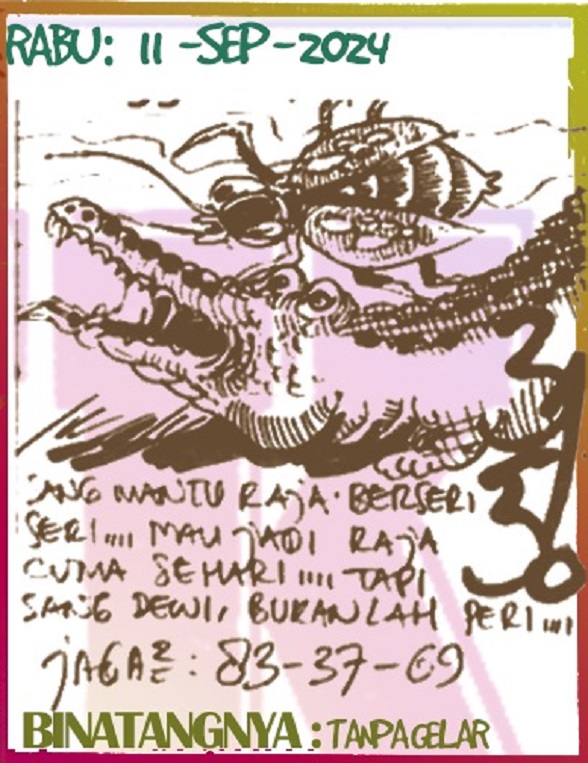 RABU: 11-SEP-2024
SANG MANTU RAJA. BERSERI
SERI.... MAU JADI RAJA
CUMA SEHARI.... TAPI
SANG DEWI, BUKANLAH PERI....
JAGA2: 83-37-69
BINATANGNYA: TANPAGELAR